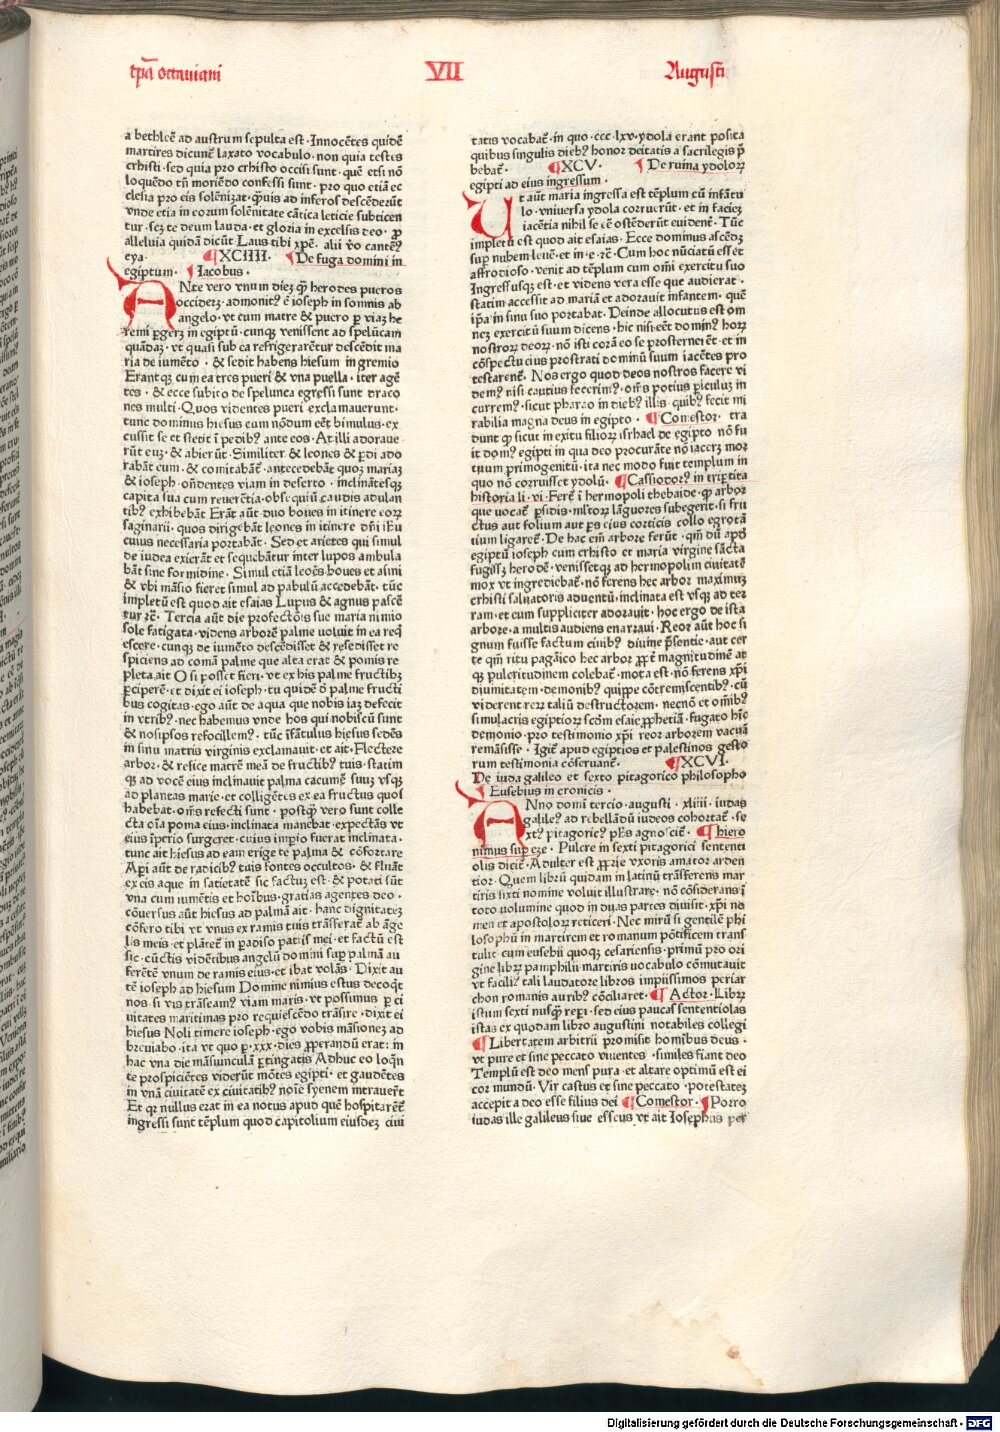 tpa octauiani VII Augusti
a bethleē ad austrum sepulta est · Innocētes quidē
martires dicunt᷑ laxato vocabulo · non quia testes
crhisti · sed quia pro crhisto occisi sunt · quē etsi nō
loquēdo tn̄ moriēdo confessi sunt · pro quo etiā ec
clesia pro eis solēnizat · quis ad inferos descēderūt
vnde etia in eorum solēnitate cātica leticie subticen
tur · scꝫ te deum lauda · et gloria in excelsis deo · ꝓ
alleluia quidā dicūt Laus tibi xpē · alii vo cantēt
eya · ¶ XCIIII · ¶ De fuga domini in
egiptum · ¶ Iacobus ·
ANte vero vnum dieꝫ ꝙ herodes pueros
occideꝫ · admonitꝰ ē ioseph in somnis ab
angelo · vt cum matre & puero ꝑ viaꝫ he
remi ꝑgeꝫ in egiptū · cunqꝫ venissent ad spelūcam
quādaꝫ · vt quasi sub ea refrigerarētur descēdit ma
ria de iumēto · & sedit habens hiesum in gremio
Erantqꝫ cum ea tres pueri & vna puella · iter agē
tes · & ecce subito de spelunca egressi sunt draco
nes multi · Quos videntes pueri exclamauerunt ·
tunc dominus hiesus cum nōdum eēt bimulus · ex
cussit se et stetit ī pedibꝰ ante eos · At illi adoraue
rūt eūꝫ · & abierūt · Similiter & leones & ꝑdi ado
rabāt eum · & comitabāt᷑ · antecedebāt quoqꝫ mariaꝫ
& ioseph · oñdentes viam in deserto · inclinātesqꝫ
capita sua cum reuerētia · obsequiū caudis adulan
tibꝰ exhibebāt Erāt aūt duo boues in itinere eorꝫ
saginarii · quos dirigebāt leones in itinere dñi iħu
cuius necessaria portabāt · Sed et arietes qui simul
de iudea exierāt et sequebātur inter lupos ambula
bāt sine formidine · Simul etiā leoēs boues et asini
& vbi māsio fieret simul ad pabulū accedebāt · tūc
impletū est quod ait esaias Lupus & agnus pascē
tur ⁊c · Tercia aūt die profectōis sue maria nimio
sole fatigata · videns arborē palme uoluit in ea reqͥ
escere · cunqꝫ de iumēto descēdisset & resedisset re
spiciens ad comā palme que alta erat & pomis re
pleta · ait O si posset fieri · vt ex his palme fructibꝫ
ꝑciperē · et dixit ei ioseph · tu quidē ō palme fructi
bus cogitas · ego aūt de aqua que nobis iaꝫ defecit
in vtribꝰ · nec habemus vnde hos qui nobiscū sunt
& nosipsos refocillemꝰ · tūc īfātulus hiesus sedēs
in sinu matris virginis exclamauit · et ait · Flectere
arbor · & refice matrē meā de fructibꝰ tuis · statim
qꝫ ad vocē eius inclinauit palma cacumē suuꝫ vsqꝫ
ad plantas marie · et colligētes ex ea fructus quos
habebat · om̄s refecti sunt · postqꝫ vero sunt colle
cta oīa poma eius · inclinata manebat · expectās vt
eius īperio surgeret · cuius impio fuerat inclinata ·
tunc ait hiesus ad eam erige te palma & cōfortare
Aꝑi aūt de radicibꝰ tuis fontes occultos · & fluāt
ex eis aque in satietatē sic factuꝫ est · & potati sūt
vna cum iumētis et hoībus · gratias agentes deo ·
cōuersus aūt hiesus ad palmā ait · hanc dignitateꝫ
cōfero tibi vt vnus ex ramis tuis trāsferat᷑ ab āge
lis meis · et plātet᷑ in ꝑadiso patris mei · et factū est
sic · cūctis vidētibus angelū domini suꝑ palmā au
ferētē vnum de ramis eius · et ibat volās · Dixit au
tē ioseph ad hiesum Domine nimius estus decoqͥt
nos · si vis trāseamꝰ viam maris · vt possimus ꝑ ci
uitates maritimas pro requiescēdo trāsire · dixit ei
hiesus Noli timere ioseph · ego vobis māsioneꝫ ad
breuiabo · ita vt quo ꝑ · xxx · dies ꝓꝑandū erat : in
hac vna die māsiunculā ꝑtingatis Adhuc eo loqͤn
te prospiciētes viderūt mōtes egipti · et gaudētes
in vnā ciuitatē ex ciuitatibꝰ noīe syenem intrauert᷑
Et qꝫ nullus erat in ea notus apud quē hospitarēt᷑
ingressi sunt tēplum quod capitolium eiusdeꝫ ciui
tatis vocabat᷑ · in quo · ccc · lxv · ydola erant posita
quibus singulis diebꝰ honor deitatis a sacrilegis p̄
bebat᷑ · ¶ XCV · ¶ De ruina ydolorꝫ
egipti ad eius ingressum ·
Ut aūt maria ingressa est tēplum cū infātu
lo · vniuersa ydola corruerūt · et in facieꝫ
iacētia nihil se eē ostēderūt euident᷑ · Tūc
impletū est quod ait esaias · Ecce dominus ascēdꝫ
sup nubem leuē · et in · e · ⁊c · Cum hoc nūciatū esset
affrodisio · venit ad tēplum cum om̄i exercitu suo
Ingressusqꝫ est · et videns vera esse que audierat ·
statim accessit ad mariā et adorauit infantem · quē
ip̄a in sinu suo portabat · Deinde allocutus est om
neꝫ exercitū suum dicens · hic nisi eēt dominꝰ horꝫ
nostrorꝫ deorꝫ · nō isti corā eo se prosternerēt · et in
cōspectu eius prostrati dominū suum iacētes pro
testarent᷑ · Nos ergo quod deos nostros facere vi
demꝰ nisi cautius fecerimꝰ · om̄s potius ꝑiculuꝫ in
curremꝰ · sicut pharao in diebꝰ illis · quibꝰ fecit mi
rabilia magna deus in egipto · ¶ Comestor · tra
dunt ꝙ sicut in exitu filiorꝫ isrhael de egipto nō fu
it domꝰ egipti in qua deo procurāte nō iaceꝫ mor
tuum primogenitū · ita nec modo fuit templum in
quo nō corruisset ydolū · ¶ Cassiodorꝰ in triꝑtita
historia li · vi · Fert᷑ ī hermopoli thebaide · ꝙ arbor
que uocat᷑ ꝑsidis · ml̄torꝫ lāguores subegerit · si fru
ctus aut folium aut ꝑs eius corticis collo egrotā
tium ligaret᷑ · De hac em̄ arbore ferūt · qm̄ dū apd̄
egiptū ioseph cum crhisto et maria virgine sācta
fugissꝫ herodē · venissetqꝫ ad hermopolim ciuitatē
mox vt ingrediebat᷑ · nō ferens hec arboꝫ maximuꝫ
crhisti saluatoris aduentū · inclinata est vsqꝫ ad ter
ram · et cum suppliciter adorauit · hoc ergo de ista
arbore · a multis audiens enarraui · Reor aūt hoc si
gnum fuisse factum ciuibꝰ diuine p̄sentie · aut cer
te qm̄ ritu pagāico hec arboꝫ ꝓpt᷑ magnitudinē at
qꝫ pulcritudinem colebat᷑ · mota est · nō ferens xp̄i
diuinitatem · demonibꝰ quippe cōtremiscentibꝰ · cū
viderent reꝝ taliū destructorem · necnō et om̄ibꝰ
simulacris egiptiorꝫ scdm esaie ꝓphetiā · fugato hīc
demonio · pro testimonio xp̄i reor arborem vacuā
remāsisse · Igit᷑ apud egiptios et palestinos gesto
rum testimonia cōseruant᷑ · ¶ XCVI ·
De iuda galileo et sexto pitagorico philosopho
¶ Eusebius in cronicis ·
ANno domī tercio · augusti · xliiii · iudas
galileꝰ ad rebellādū iudeos cohortat᷑ · se
xtꝰ pitagoricꝰ pħs agnoscit᷑ · ¶ hiero
nimus sup eze · Pulcre in sexti pitagorici sententi
olis dicit᷑ · Adulter est ꝓprie vxoris amator arden
tior · Quem librū quidam in latinū trāsferens mar
tiris sixti nomine voluit illustrare · nō cōsiderans ī
toto uolumine quod in duas partes diuisit · xp̄i no
men et apostolorꝫ reticeri · Nec mirū si gentilē phi
losophū in martirem et romanum pōtificem trans
tulit · cum eusebii quoqꝫ cesariensis · primū pro ori
gine librꝫ pamphilii martiris uocabulo cōmutauit
vt faciliꝰ tali laudatore libros impiissimos periar
chon romanis auribꝰ cōciliaret · ¶ Actor · Librꝫ
istum sexti nusqꝫ reꝑi · sed eius paucas sententiolas
istas ex quodam libro augustini notabiles collegi
¶ Libertatem arbitrii promisit homibus deus ·
vt pure et sine peccato viuentes · similes fiant deo
Templū est deo mens pura · et altare optimū est ei
cor mundū · Vir castus et sine peccato · potestateꝫ
accepit a deo esse filius dei ¶ Comestor · ¶ Porro
iudas ille galileus siue esseus vt ait Iosephus per
Digitalisierung gefördert durch die Deutsche Forschungsgemeinschaft - DFG